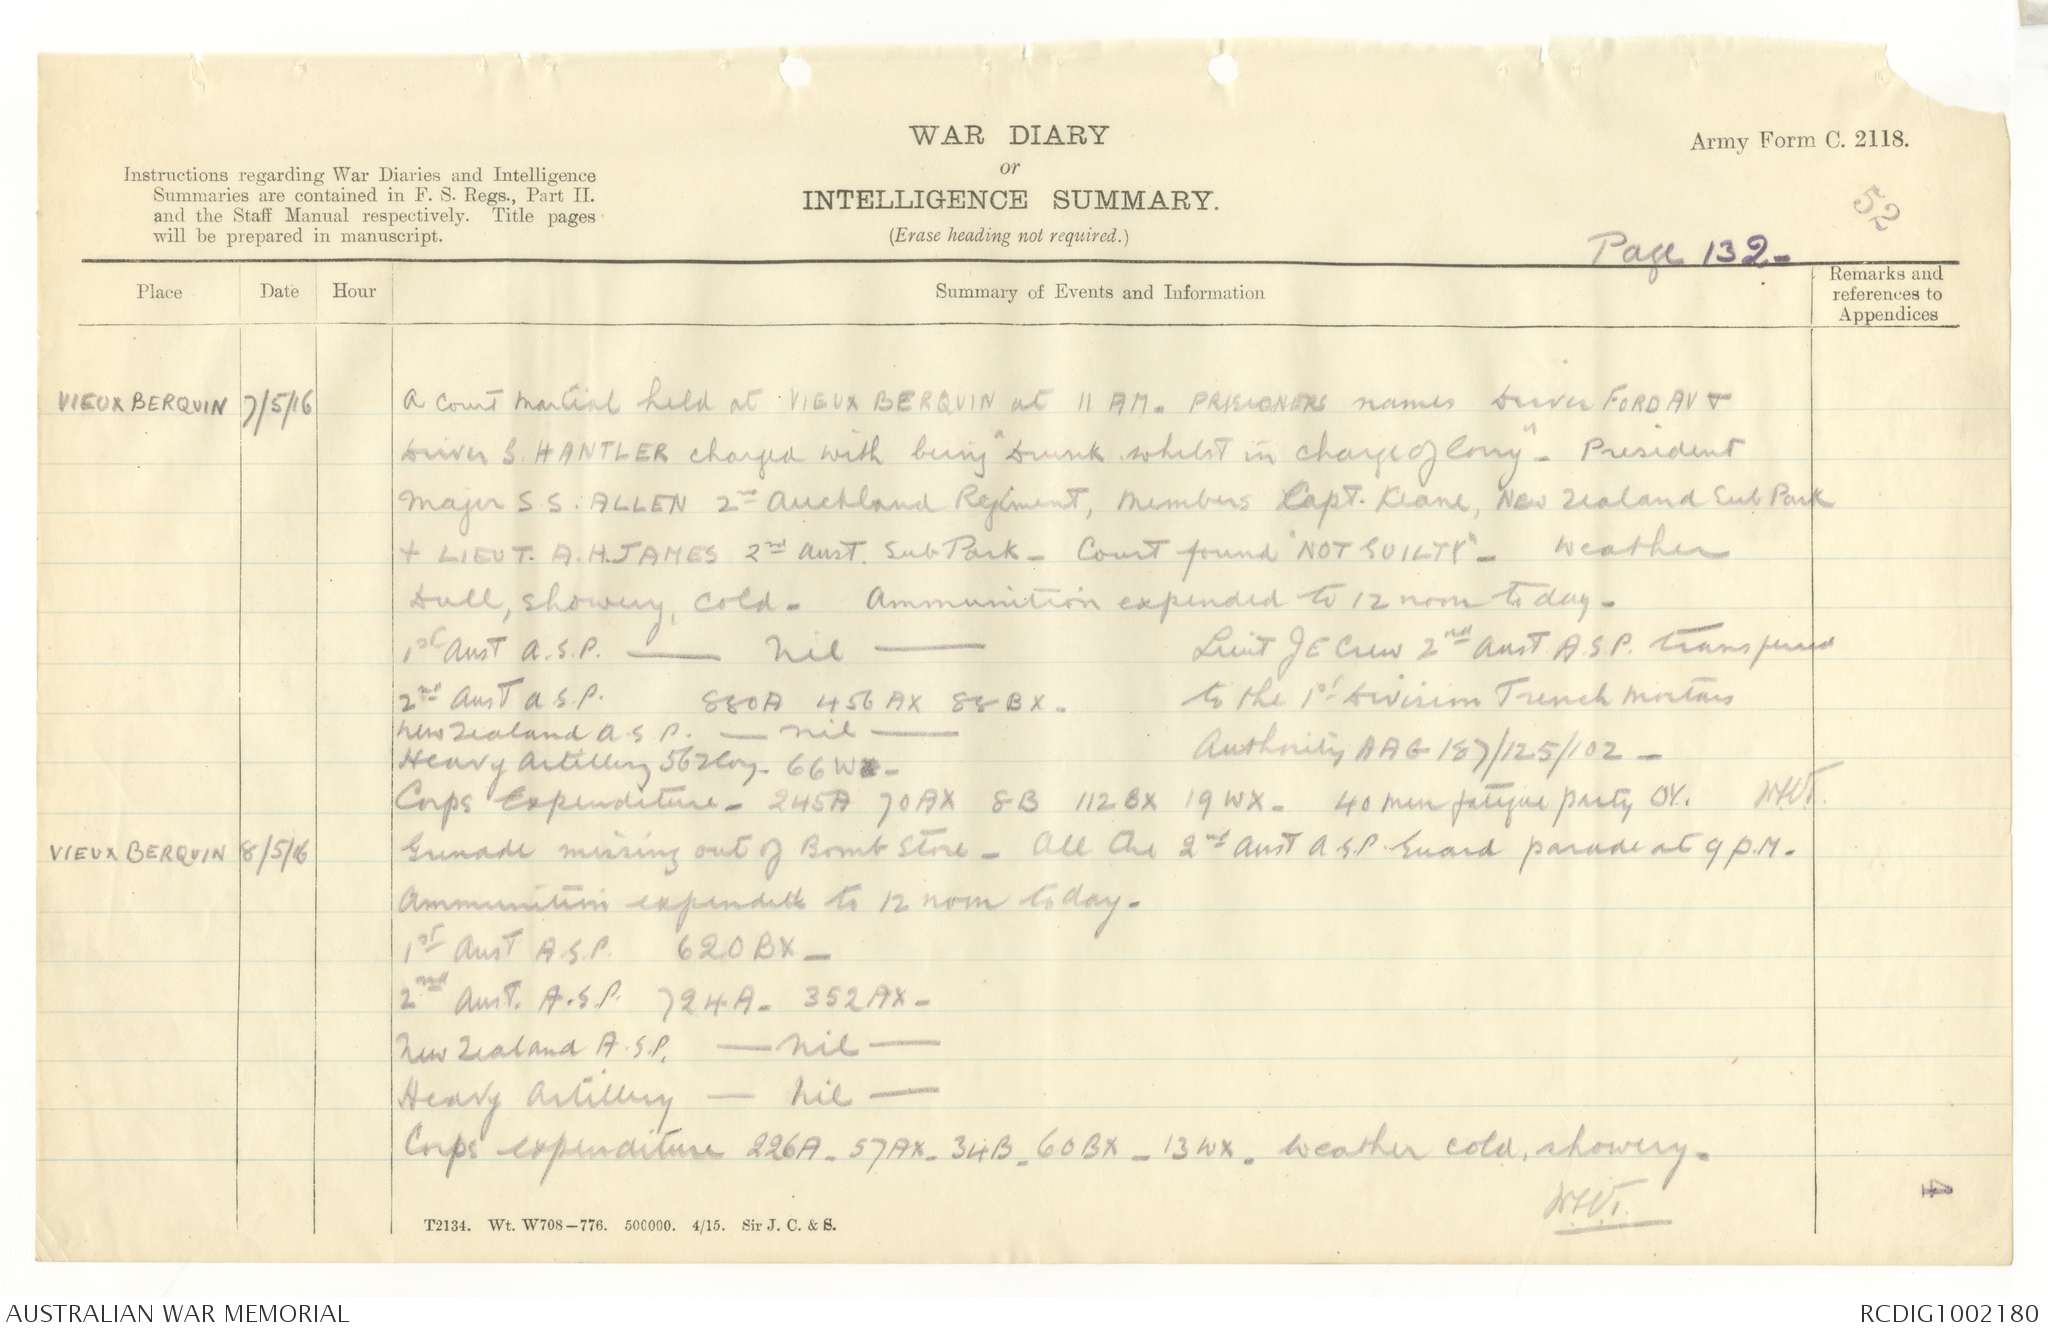 WAR DIARY
or
INTELLIGENCE SUMMARY.
(Erase heading not required.)
Army Form C. 2118.
Instructions regarding War Diaries and Intelligence
Summaries are contained in F. S. Regs., Part II.
and the Staff Manual respectively. Title pages
will be prepared in manuscript.
52
Page 132-
Place
Date
Hour
Summary of Events and Information
Remarks and
references to
Appendices
VIEUX BERQUIN 7/5/16
A court martial held at VIEUX BERQUIN at 11 AM. PRISIONERS names Driver FORD AV &
Driver S. HANTLER charged with being "Drunk whilst in charge of lorry" - President
Major S.S. ALLEN 2nd Auckland Regiment, members Capt. Keane, New Zealand Sub Park
+ LIEUT. A.H. JAMES 2nd Aust. Sub Park - Court found "NOT GUILTY" - Weather
Dull, showery, cold - Ammunition expended to 12 noon today -
1st Aust A.S.P. — Nil —
2nd Aust A.S.P. 880A 456 AX 88 BX -
New Zealand A.S.P. — nil —
Heavy Artillery 66 WX -
Lieut J E Crew 2nd Aust A.S.P. transferred
to the 1st Division Trench Mortars
Authority AAG 187/125/102 -
Corps Expenditure - 245A 70AX 8B 112BX 19 WX - 40 men fatigue party
VIEUX BERQUIN 8/5/16
Grenade missing out of Bomb Store - All the 2nd Aust A.S.P. Guard parade at 9 P.M.
Ammunition expended to 12 noon today -
1st Aust A.S.P. 620 BX -
2nd Aust. A.S.P. 724A - 352 AX -
New Zealand A.S.P. — Nil —
Heavy Artillery — Nil —
Corps expenditure 226A - 57AX - 34B - 60BX - 13 WX - Weather cold, showery -
T2134. Wt. W708—776. 500000. 4/15. Sir J. C. & S.
4
AUSTRALIAN WAR MEMORIAL
RCDIG1002180